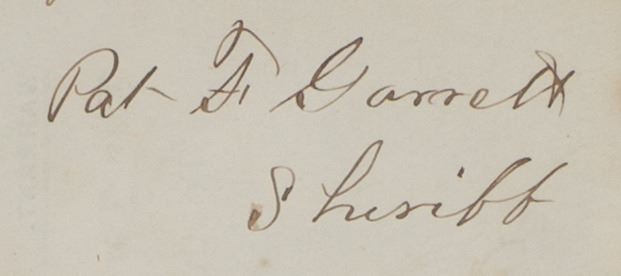 Pat F Garrett
Sheriff